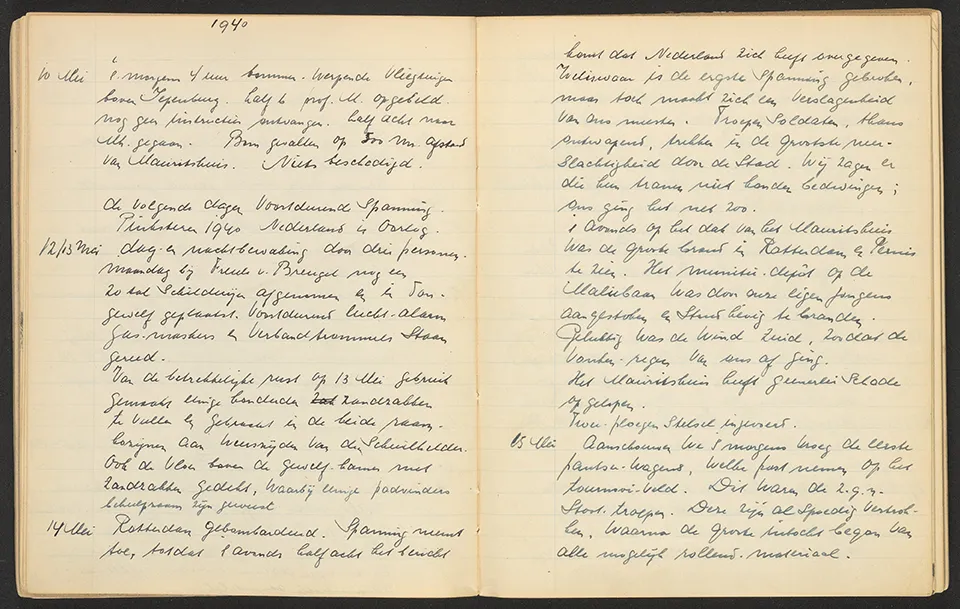 1940
10 Mei 's morgens 4 uur bommen-werpende vliegtuigen
boven Iepenburg. half 6 prof. M. opgebeld.
nog geen instructies ontvangen. half acht naar
Mh. gegaan. Bom gevallen op 500 m. afstand
van Mauritshuis. Niets beschadigd.
de volgende dagen voortdurend Spanning.
Pinksteren 1940 Nederland is Oorlog.
12/13 Mei dag- en nachtbewaking door drie personen.
maandag bij Freule v. Brengel nog een
20 tal Schilderijen afgenomen en in
gewelf geplaatst. Voortdurend lucht-alarm
gas-maskers en Verbandtrommels Staan
gereed.
Van de betrekkelijke rust op 13 Mei gebruik
gemaakt enige honderden zandzakken
te vullen en gebracht in de beide raam-
kozijnen aan weerszijden van den Schuilkelder.
Ook de vloer boven de gewelf-kamer met
zandzakken gedekt, waarbij eenige padvinders
behulpzaam zijn geweest
14 Mei Rotterdam gebombardeerd. Spanning neemt
toe, totdat 's avonds half acht het bericht
komt dat Nederland zich heeft overgegeven.
Weliswaar is de ergste Spanning gebroken,
maar toch maakt zich een verslagenheid
van ons meester. Troepen Soldaten, thans
ontwapend, trekken in de grootste neer-
slachtigheid door de Stad. Wij zagen er
die hun tranen niet konden bedwingen;
ons ging het net zoo.
's Avonds op het dak van het Mauritshuis
was de groote brand in Rotterdam en Pernis
te zien. Het munitie-depôt op de
Maliebaan was door onze eigen jongens
aangestoken en Stond hevig te branden.
Gelukkig was de wind Zuid, zoodat de
vonken-regen van ons af ging.
Het Mauritshuis heeft geenerlei Schade
opgelopen.
Twee-ploegen Stelsel ingevoerd.
15 Mei Aanschouwen we 's morgens vroeg de eerste
pantser-wagens, welke post nemen op het
tournooi-veld. Dit waren de z.g.n.
Stoot-troepen. Deze zijn al Spoedig vertrok-
ken, waarna de groote intocht begon van
alle mogelijk rollend-materiaal.